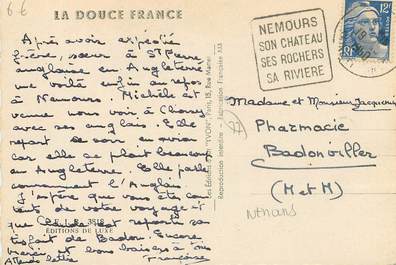 6-6
LA DOUCE FRANCE
Après avoir expédié
frère, sœur à St Pierre
anglaise en Angleterre
me voilà enfin au repos
à Nemours. Michèle est
venue nous voir à
avec ses anglais. Elle
repart ce soir en avion
car elle se plait beaucoup
en Angleterre. Elle parle
couramment l'Anglais
J'espère que vous êtes
de votre voyage et
que est reparti
de Badon. Encore
merci et bons baisers à tous
Attends lettre Françoise
3818
ÉDITIONS DE LUXE
Les Éditions d'Art "YVON", Paris, 15, Rue Martel
Reproduction interdite - Fabrication Française
NEMOURS
SON CHATEAU
SES ROCHERS
SA RIVIERE
12F
RF
Madame et Monsieur Jacquemin
Pharmacie
Badonviller
(M et M)